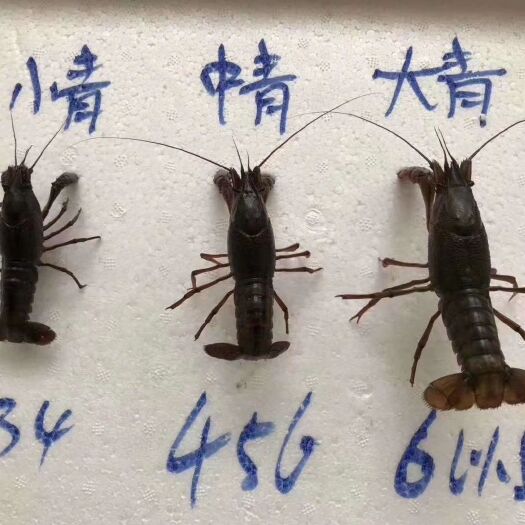 小青 中青 大青
34 456 6以